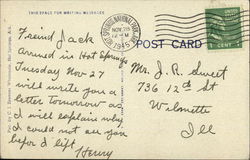 THIS SPACE FOR WRITING MESSAGES
POST CARD
NOV 28
1945
1 CENT
Freind Jack
arrived in Hot Springs
Tuesday Nov-27
will write you a
letter tomorrow and
I will explain why
I could not see you
befor I left
Henry
Mr. J. R. Sweet
736 12th St
Wilmette
Ill